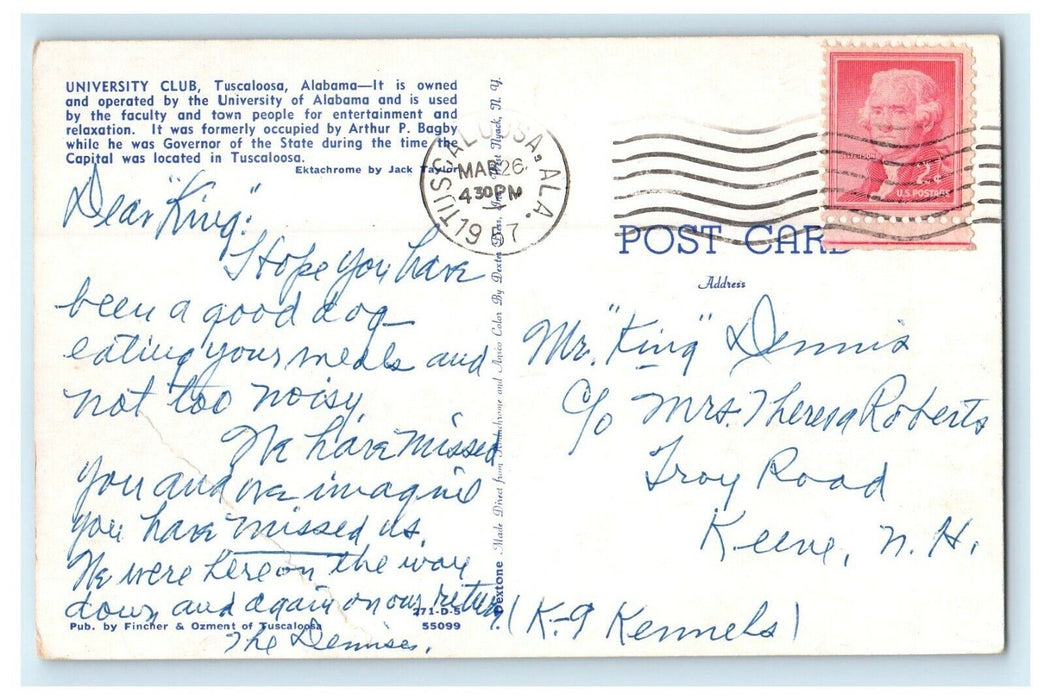 UNIVERSITY CLUB, Tuscaloosa, Alabama—It is owned
and operated by the University of Alabama and is used
by the faculty and town people for entertainment and
relaxation. It was formerly occupied by Arthur P. Bagby
while he was Governor of the State during the time the
Capital was located in Tuscaloosa.
Ektachrome by Jack Taylor
Dear "King":
I Hope you have
been a good dog
eating your meals and
not too noisy.
We have missed
you and we imagine
you have missed us.
We were here on the way
down and again on our return.
The Dennises.
271-D-5
Pub. by Fincher & Ozment of Tuscaloosa 55099
Dextone Made Direct from Kodachrome and Ansco Color By Dexter Press, Inc. West Nyack, N. Y.
TUSCALOOSA, ALA.
MAR 26
4 30 PM
1957
U.S. POSTAGE
POST CARD
Address
Mr. "King" Dennis
c/o Mrs. Theresa Roberts
Troy Road
Keene, N. H.
(K-9 Kennels)